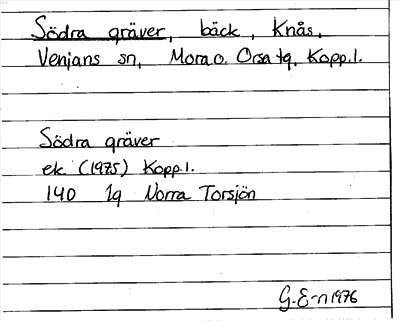 Södra gräver, bäck, Knås,
Venjans sn, Mora o. Orsa tg, Kopp. l.
Södra gräver
ek (1975) Kopp. l.
140 1g Norra Torsjön
G. E-n 1976